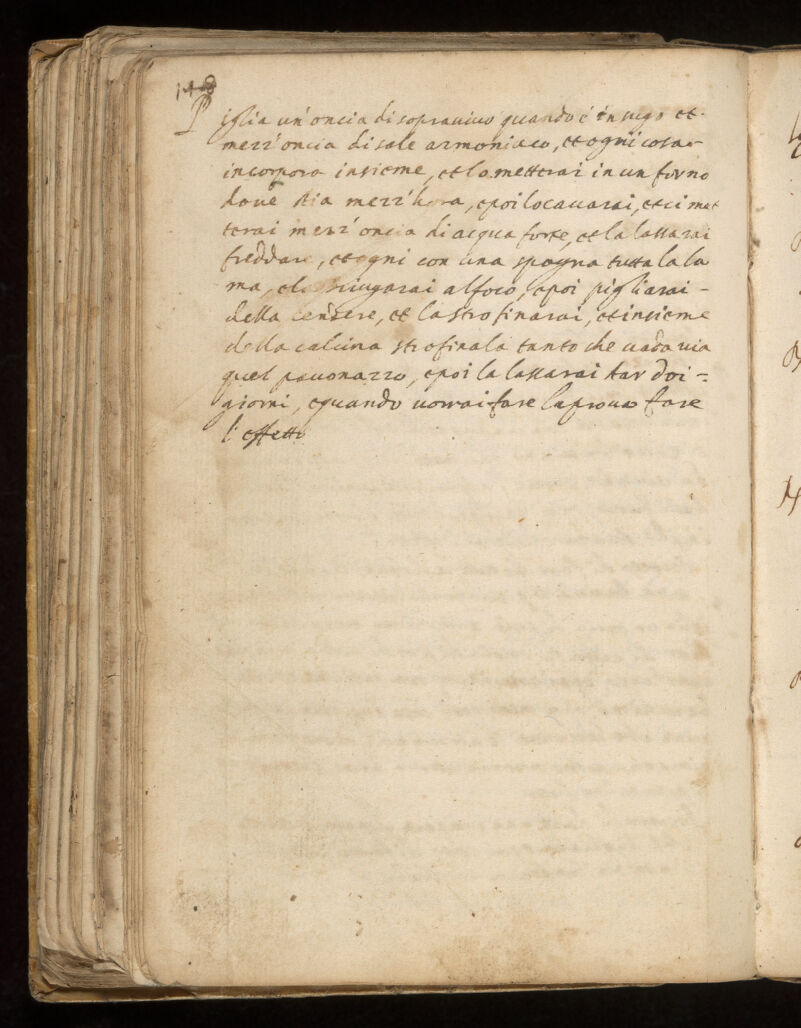 148
Piglia un'oncia di sopraviuo quando è in uigo et
mezz'oncia di sale armoniaco, et ogni cosa
incorpora insieme, et lo metterai in un forno
doue stia mezz'hora, e poi lo cauarai, et ci met
terai mezz'oncia di acqua forte, et la lassarai
freddare, et ogni con una spogna tutta la la
ma, e la sciugarai al foco, e poi pigliarai -
della cenere, et la strofinarai, et insieme
della calcina strofinala tanto che uada uia
quel pauonazzo, e poi la lassarai star doi =
giorni, e quando uorrai fare la proua fare
l'effetto